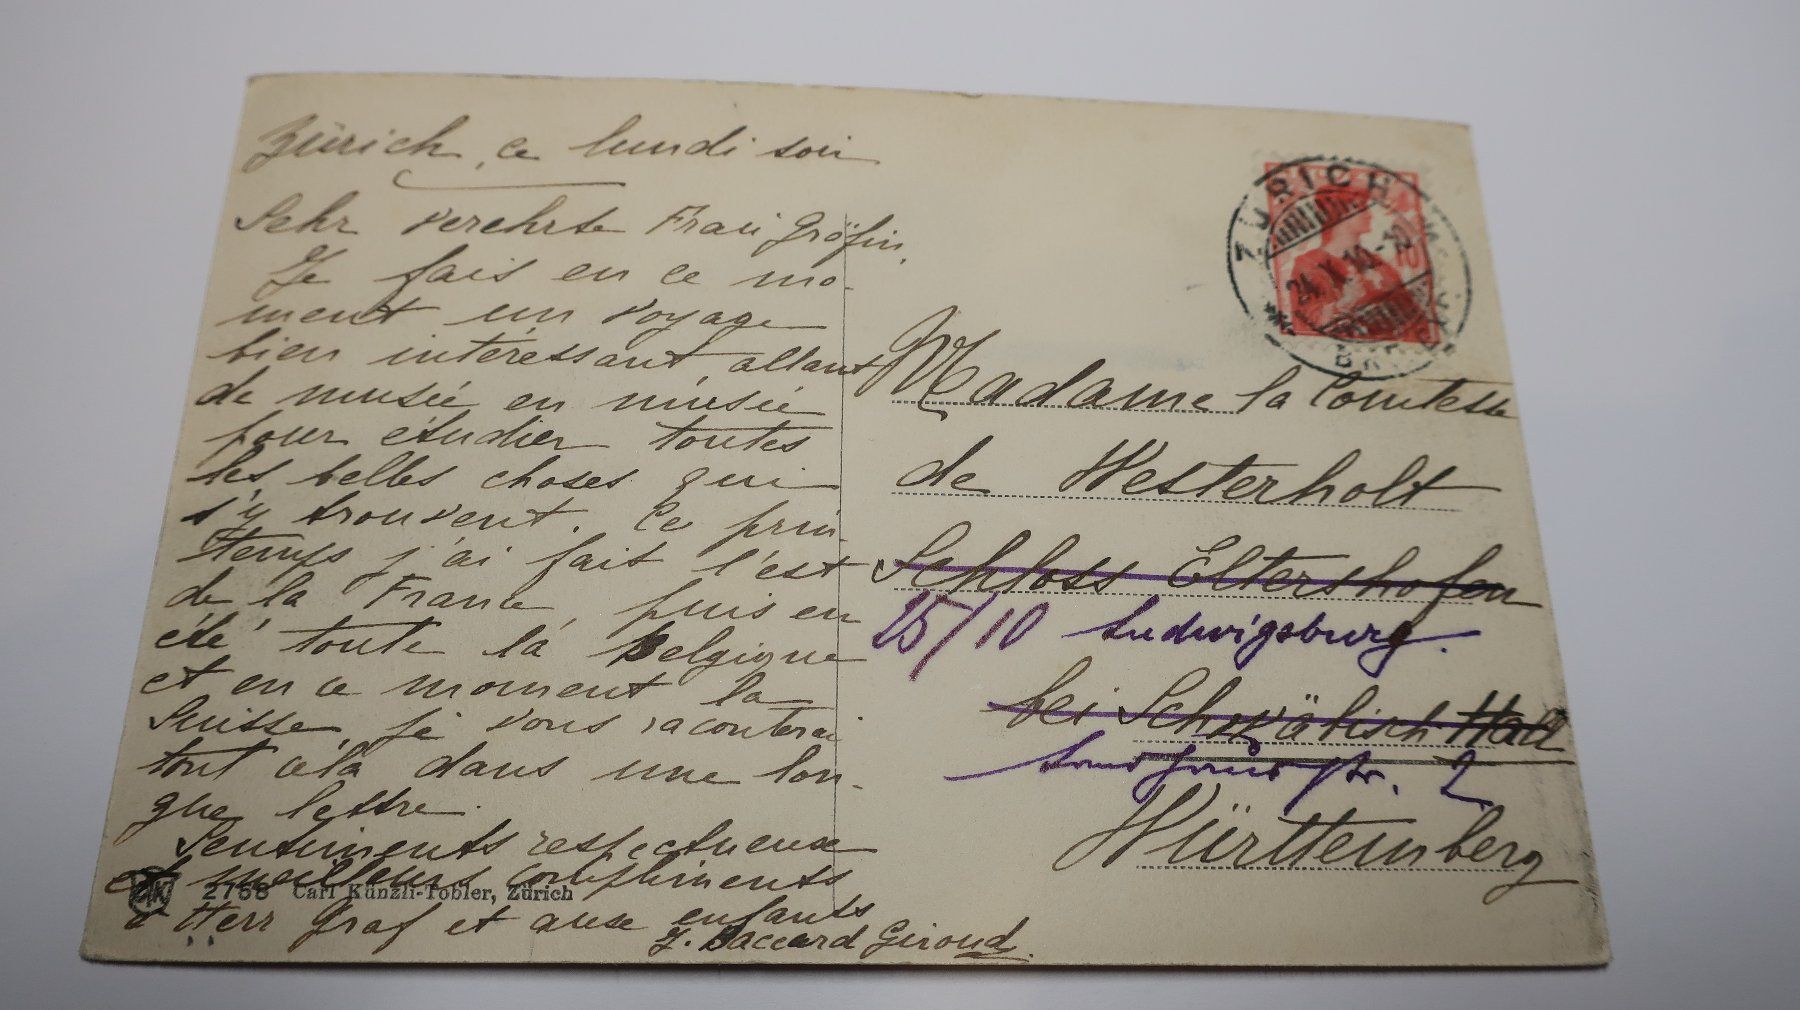 Zürich, ce lundi soir
Sehr verehrte Frau Gräfin,
Je fais en ce mo-
ment un voyage
bien intéressant, allant
de musée en musée
pour étudier toutes
les belles choses qui
s'y trouvent. Ce prin-
temps j'ai fait l'est
de la France, puis en
été toute la Belgique
et en ce moment la
Suisse, je vous raconterai
tout cela dans une lon-
gue lettre.
Sentiments respectueux
et meilleurs compliments
à Herr Graf et aux enfants
J. Baccard Giroud.
2758 Carl Künzli-Tobler, Zürich
ZÜRICH
24.X.10.-12
Madame la Comtesse
de Westerholt
Schloss Eltershofen
25/10 Ludwigsburg.
bei Schwäbisch Hall
str. 2
Württemberg